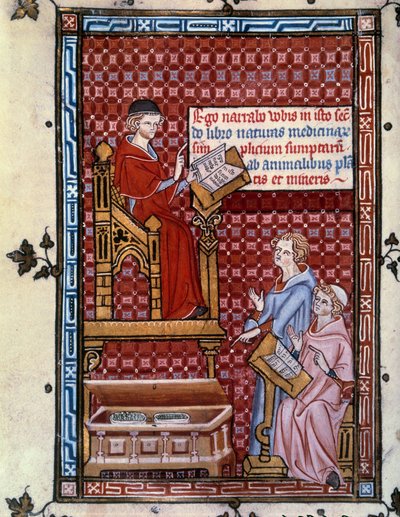 Ego narrabo vobis in isto secū
do libro naturas medicinaꝝ
sim plicium sumptarū
ab animalibus plā
tis et mineris.